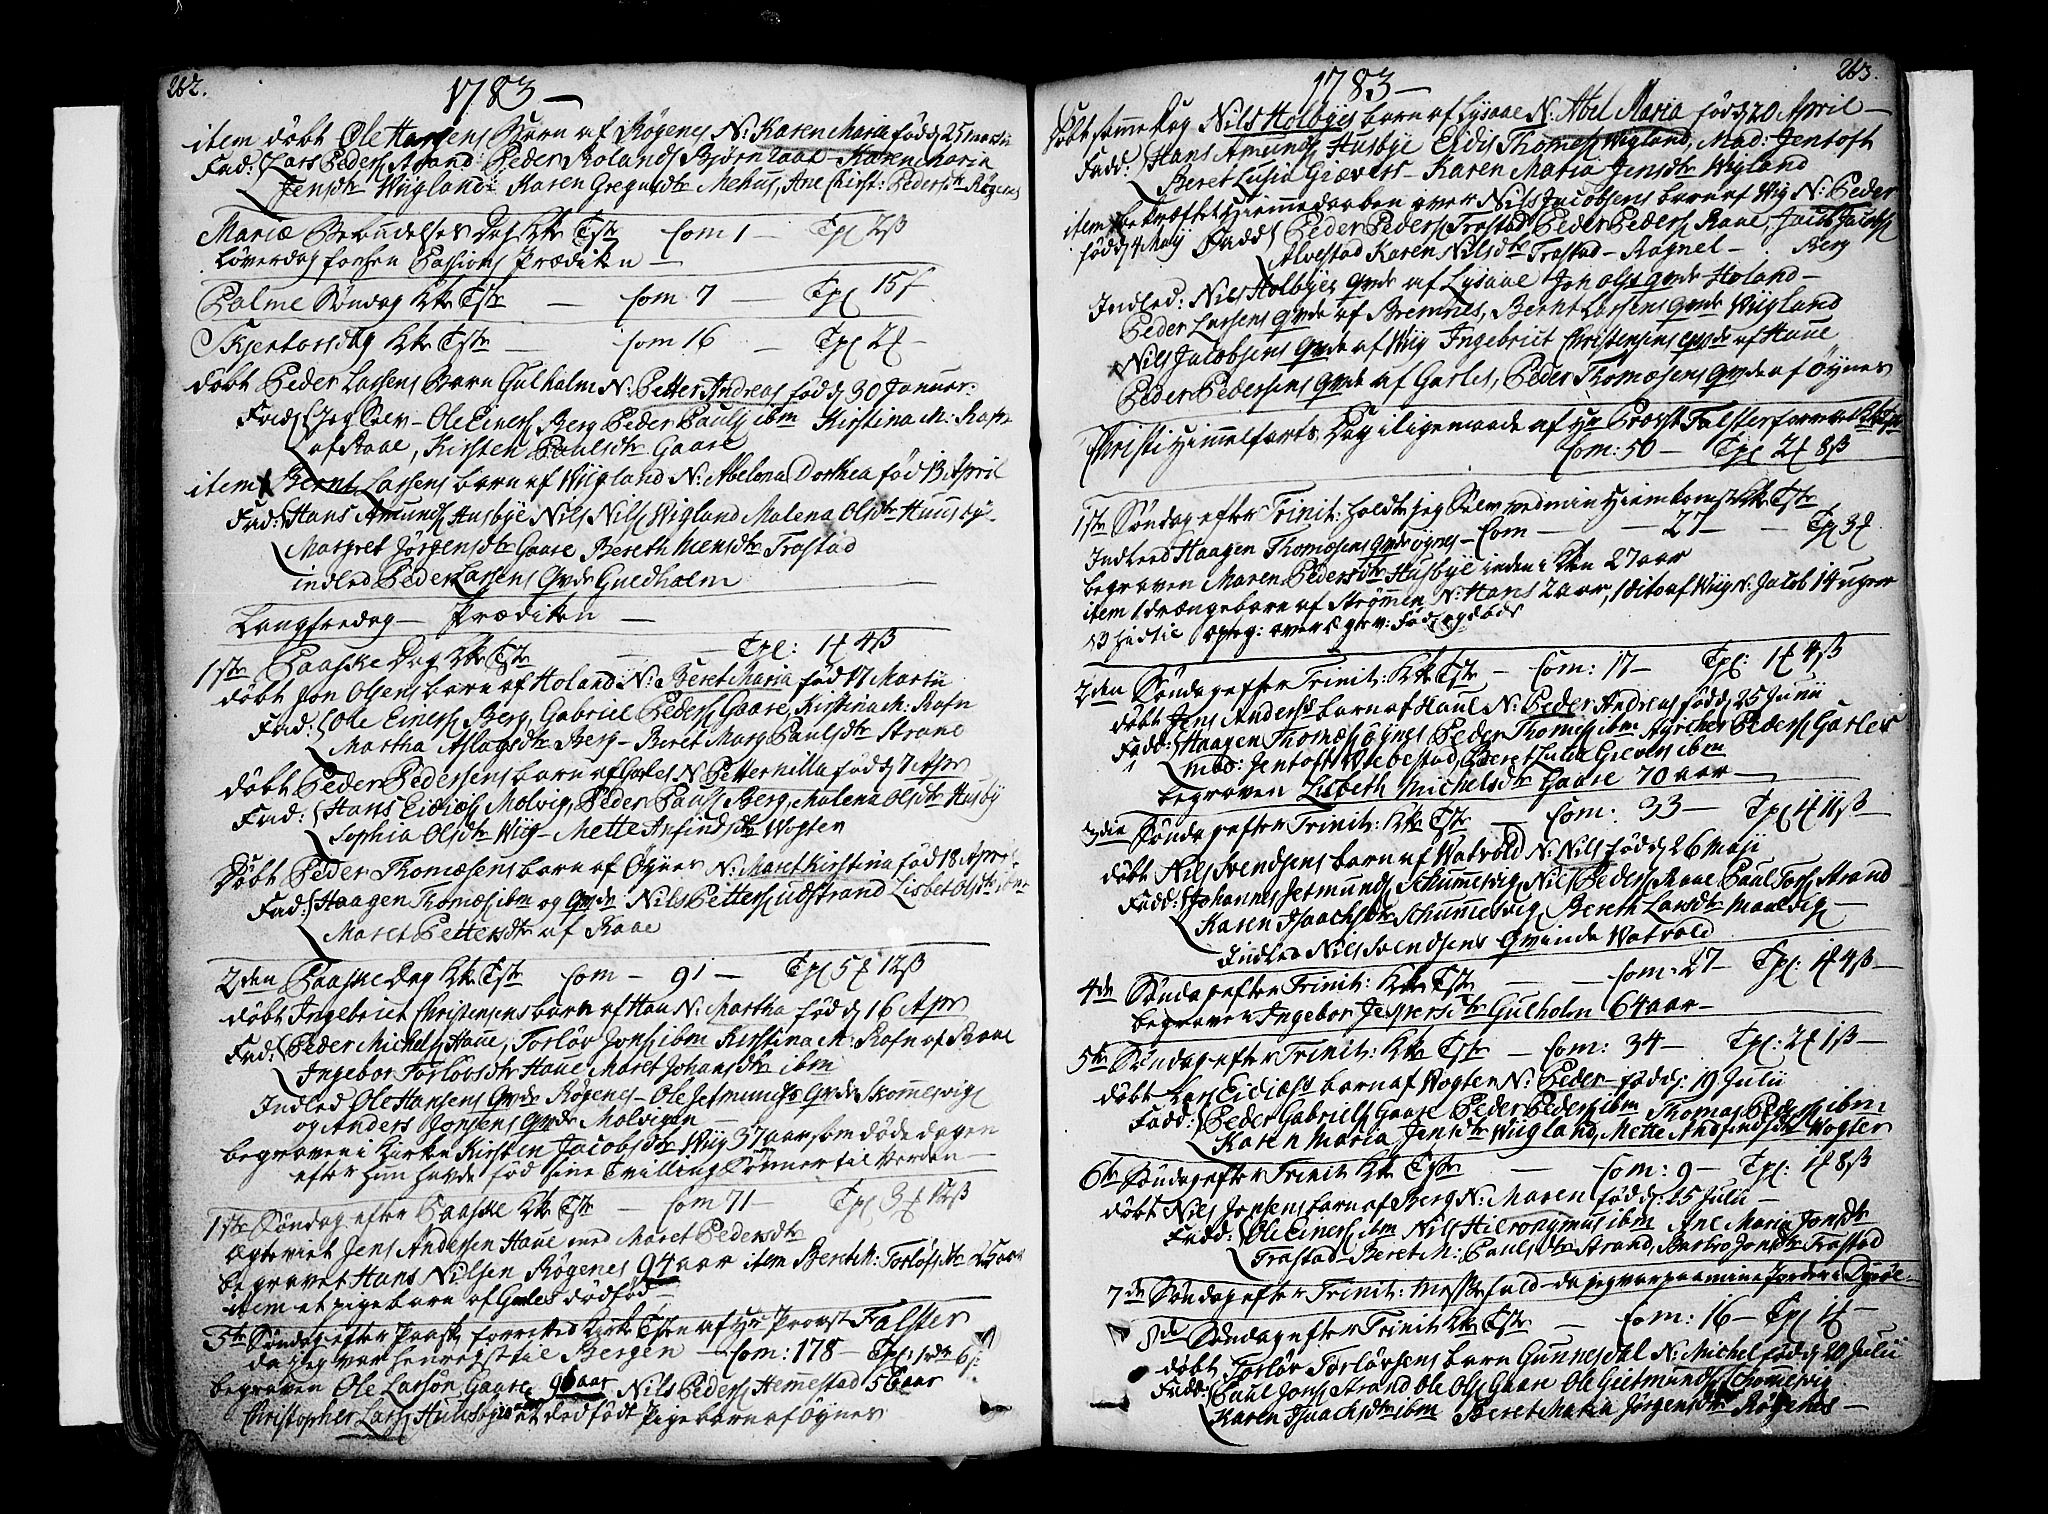 262.
1783 —
item döbt Ole Hansens Barn af Røgenes N: Karen Maria föd d 25 Martii
Fad: Lars Peders Strand Peder Rolands Biørn Karen Maria
Jensdtr Wiigland Karen Gregersdtr Mehus, Ane Christ: Pedersdtr Røgenes
Mariæ Bebudelses Dag Kke Tste Com 1 — Tpl 2ß
Løverdag forhen Passions Prædiken —
Palme Søndag Kke Tste — Com 7 — Tpl 15ß
Skjertorsdag Kke Tste — Com 16 — Tpl 2
döbt Peder Larsens Barn Gulholm N: Petter Andreas föd d 30 Januar:
Fad: Jeg Selv – Ole Einers Berg Peder Pauls ibm Kirstina M: Rafn
af Raae, Kirsten Paulsdtr Gaare
item Bernt Larsens barn af Wiigland N: Abelona Dorthea föd 13 April
Fad: Hans Amunds Husbye Nils Nils Wigland Malena Olsdtr Huusby
Margret Jörgensdtr Gaare Bereth Mensdtr Trastad
indled Peder Larsens Qvde Guldholm
Langfredag — Prædiken —
1ste Paaske Dag Kke Tste — Tpl: 1 4ß
döbt Jon Olsens barn af Holand N: Beret Maria föd 17 Martii
Fad: Ole Einers Berg, Gabriel Peders Gaare, Kirstina M: Rafn
Martha Aslagsdtr Berg – Beret Marg Paulsdtr Strand
döbt Peder Pedersens barn af Garles N: Petternilla föd d 7 Apr
Fad: Hans Eidis Molvig, Peder Pauls Berg, Malena Olsdtr Husby
Sophia Olsdtr Wiig – Mette Anfindsdtr Wogter
Döbt Peder Thomæsens barn af Öynes N: Maret Kirstina föd 18 April
Fad: Haagen Thomæs ibm og Qvde Nils Petters udstrand Lisbet Olsdtr ibm
Maret Pettersdtr af Raae
2den Paaske Dag Kke Tste Com – 91 – Tpl 5 12ß
döbt Ingebriet Christensens barn af Hau N: Martha föd d 16 Apr
Fad: Peder Michels Haue, Torlöv Jons ibm Kirstina M: Rafn af Raae
Ingebor Torlövsdtr Haue Maret Johansdtr ibm
Indled Ole Hansens Qvde Røgenes – Ole Jetmundss Qvde Skommesvig
og Anders Jonsens Qvde Molvigen —
begraven i Kirken Kirsten Jacobsdtr Wiig 37 aar, som döde dagen
efter hun havde föd sine Tvilling Sönner til Verden —
1ste Söndag efter Paaske Kke Tste — Com 71 — Tpl 3 12ß
Ægteviet Jens Andersen Haue med Maret Pedersdtr
begravet Hans Nilsen Røgenes 94 aar item Beret M: Torlöfsdtr aar
item et pigebarn af Garles dödföd —
3te Söndag efter Paask forretted Kirke Tsten af Hr Provst Falster
da jeg var henreyst til Bergen — Com: 178 – Tpl: 1 rdr 6
begraven Ole Larsön Gaare 96 aar Nils Peders Hemmestad 56 aar
Christopher Lars Huusbye et dödfödt Pigebarn af Öynes
263.
1783 —
Döbt samme Dag Nils Holbyes barn af Lysaae N: Abel Maria föd d 20 April —
Fadd: Hans Amunds Husbye Eidis Thomes Wigland, Mad: Jentoft
Beret Lusia Giævers – Karen Maria Jensdtr Wigland
item bekræftet Hiemmedaaben over Nils Jacobsens barn af Wiig N: Peder
föd d 4 Maij Fadd Peder Peders Trastad Peder Peders Raae, Jacob Jacobs
Alvestad Karen Nilsdtr Trastad – Ragnel – Berg
Indled: Nils Holbyes Qvde af Lysaae Jon Ols Qvde Holand –
Peder Larsens Qvde af Bremnes, Bernt Larsens Qvde Wiigland
Nils Jacobsens Qvde af Wiig Ingebriet Christensens Qvde af Haue
Peder Pedersens Qvde af Garles, Peder Thomæsens Qvde af Öynes
Christi Himmelfarts Dag iligemaade af Hr Provst Falster forrettet Kke Tste
Com: 50 — Tpl 2 8ß
1ste Söndag efter Trinit: holdt jeg Selv ved min Hiemkomst Kke Tste
Indled Haagen Thomæsens Qvde Öynes – Com — 27 — Tpl 3
begraven Maren Pedersdtr Husbye inden i Kken 27 aar
item 1 drængebarn af Strømmen N: Hans 2 aar, 1 dito af Wiig N: Jacob 14 uger
2den Söndag efter Trinit: Kke Tste — Com: 17 — Tpl: 1 4ß
döbt Jens Anders barn af Haue N: Peder Andreas föd d 25 Junii
Fadd: Haagen Thomæs Öynes Peder Thomes ibm Peders Garles
Mad: Jentoft Webestad, Beret Lusia Gievers ibm
begraven Lisbeth Michelsdtr Gaare 70 aar —
3die Söndag efter Trinit: Kke Tste — Com: 33 — Tpl 1 11ß
döbt Nils Svendsens barn af Watvold N: Nils föd d 26 Maji
Fadd: Johannes Jetmunds Schummesvig, Nils Peders Raae Paul Tors Strand
Karen Isaachsdtr Schummesvig, Bereth Larsdtr Maalvig —
Indled Nils Svendsens Qvinde Watvold
4de Söndag efter Trinit: Kke Tste — Com: 27 — Tpl: 1 4ß —
begraven Ingebor Jespersdtr Gulholm 64 aar —
5te Söndag efter Trinit: Kke Tste — Com: 34 — Tpl: 2 1ß —
döbt Lars Eidisss barn af Wogter N: Peder – föd d: 19 Julii
Fadd: Peder Gabriels Gaare Peder Peders ibm Thomas Peders ibm:
Karen Maria Jensdtr Wiigland, Mette Andfindsdtr Wogter
6te Söndag efter Trinit Kke Tste — Com: 9 — Tpl: 1 8ß
döbt Nils Jonsens barn af Berg N: Maren föd d: 25 Julii —
Fadd: Ole Einers ibm Nils Hieronymus ibm Ane Maria Jonsdtr
Trastad – Beret M: Paulsdtr Strand, Barbro Jonsdtr Trastad
7de Söndag efter Trinit: Messefald – da jeg var paa mine Jorder i Dyrøe –
8de Söndag efter Trinit Kke Tste — Com: 16 — Tpl 1 —
döbt Torlöv Torlövsens barn Gunnesdal N: Michel föd d 20 Julii
Fadd: Paul Jons Strand Ole Ols Gaare Ole Gietmunds Schomesvig
Karen Isaachsdtr ibm Beret Maria Jörgensdtr Røgenes —